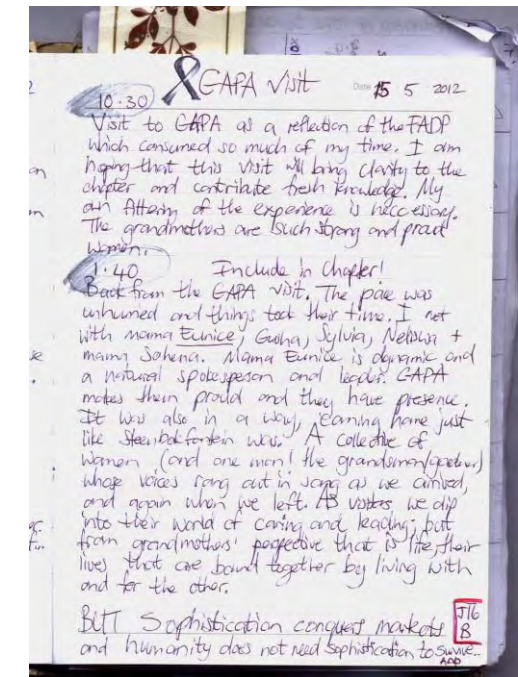 GAPA Visit Date 15 5 2012
10.30
Visit to GAPA as a reflection of the FADP
which consumed so much of my time. I am
hoping that this visit will bring clarity to the
chapter and contribute fresh knowledge. My
own filtering of the experience is neccessary.
The grandmothers are such strong and proud
women.
1.40 Include in Chapter!
Back from the GAPA visit. The pace was
unhurried and things took their time. I met
with mama Eunice, Sylvia, +
mama Mama Eunice is dynamic and
a natural spokesperson and leader. GAPA
makes them proud and they have presence.
It was also in a way, coming home just
like Steenbokfontein was. A collective of
women (and one man! the
whose voices rang out in song as we arrived,
and again when we left. As visitors we dip
into their world of caring and leading; but
from grandmothers' perspective that is life, their
lives that are bound together by living with
and for the other.
BUT Sophistication conquers markets
and humanity does not need sophistication to survive..
J16
B
AND